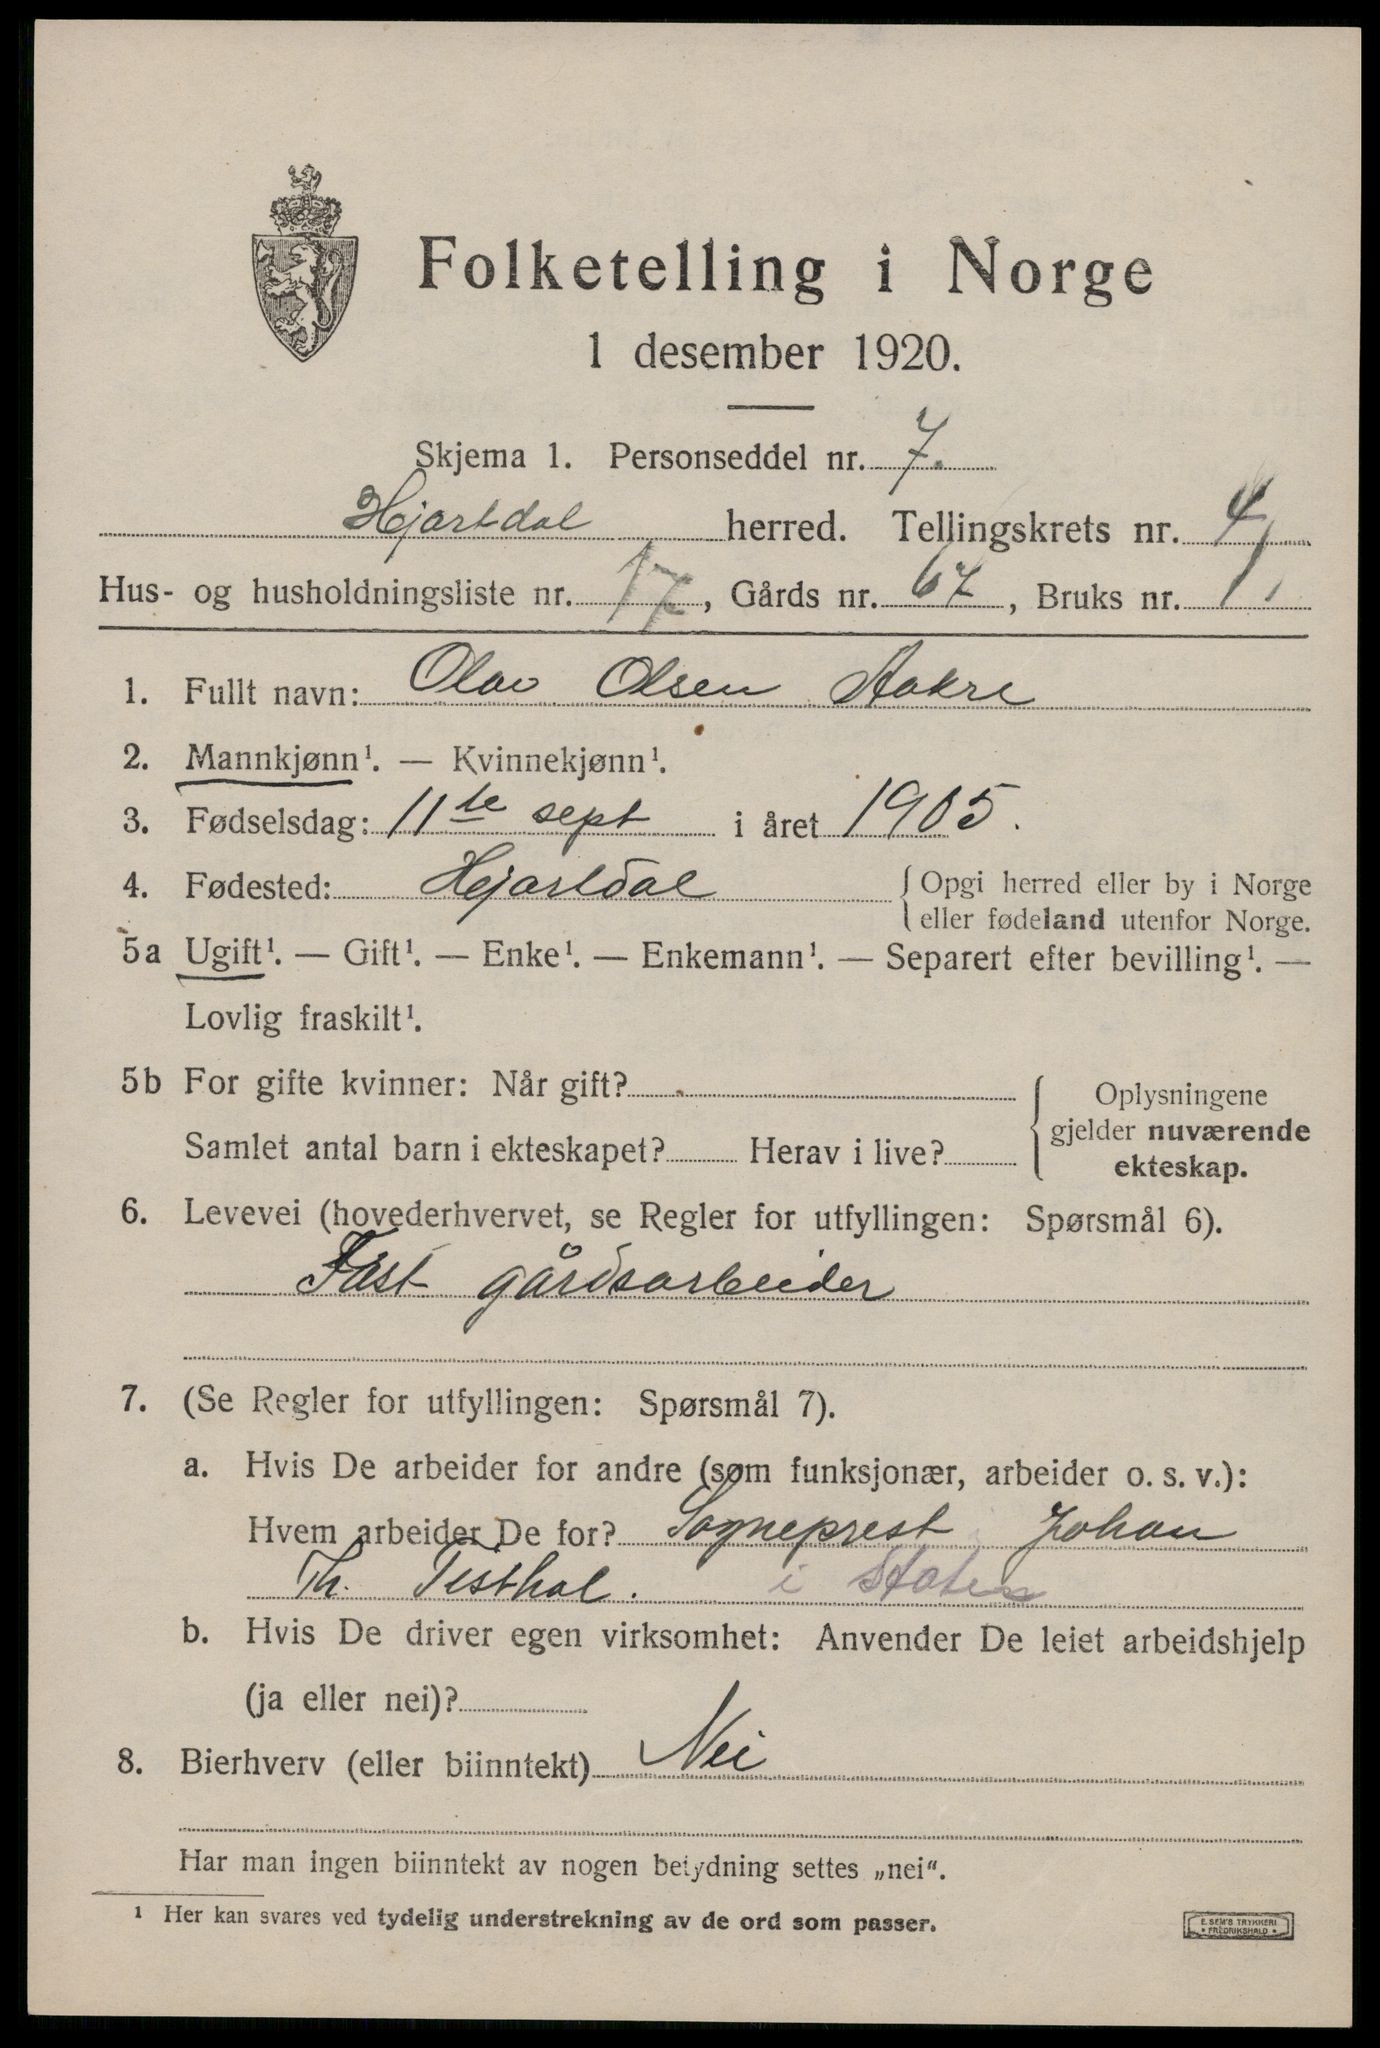 Folketelling i Norge
1 desember 1920.
Skjema 1. Personseddel nr. 7.
Hjartdal herred. Tellingskrets nr. 4
Hus- og husholdningsliste nr. 17, Gårds nr. 67, Bruks nr. 1.
1. Fullt navn: Olav Olsen Aakre
2. Mannkjønn¹. — Kvinnekjønn¹.
3. Fødselsdag: 11te sept i året 1905.
4. Fødested: Hjartdal { Opgi herred eller by i Norge
eller fødeland utenfor Norge.
5a Ugift¹. — Gift¹. — Enke¹. — Enkemann¹. — Separert efter bevilling¹. —
Lovlig fraskilt¹.
5b For gifte kvinner: Når gift? { Oplysningene
gjelder nuværende
Samlet antal barn i ekteskapet? Herav i live?
ekteskap.
6. Levevei (hovederhvervet, se Regler for utfyllingen: Spørsmål 6).
Fast gårdsarbeider
7. (Se Regler for utfyllingen: Spørsmål 7).
a. Hvis De arbeider for andre (som funksjonær, arbeider o. s. v.):
Hvem arbeider De for? Sogneprest Johan
Th. Tisthal. i Staten
b. Hvis De driver egen virksomhet: Anvender De leiet arbeidshjelp
(ja eller nei)?
8. Bierhverv (eller biinntekt) Nei
Har man ingen biinntekt av nogen betydning settes „nei“.
¹ Her kan svares ved tydelig understrekning av de ord som passer.
E. SEM'S TRYKKERI
* FREDRIKSHALD *